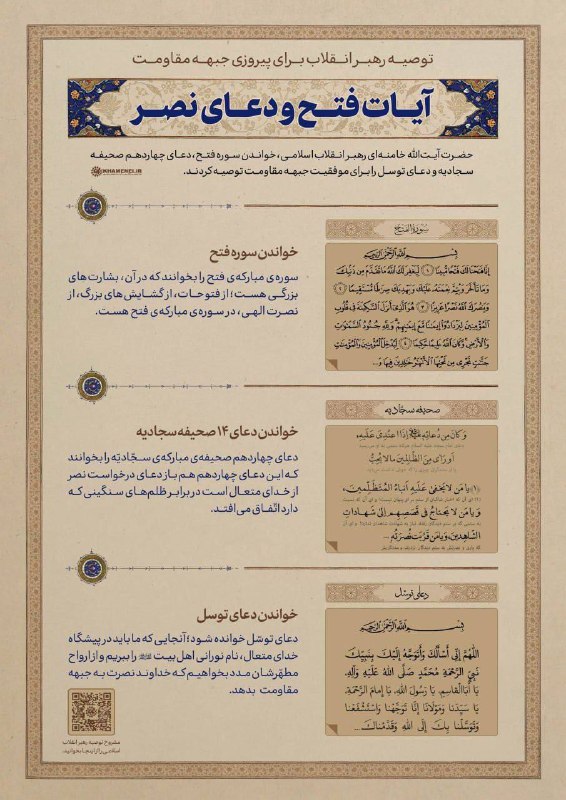 توصیه رهبر انقلاب برای پیروزی جبهه مقاومت
آیات فتح و دعای نصر
حضرت آیت‌الله خامنه‌ای رهبر انقلاب اسلامی، خواندن سوره فتح، دعای چهاردهم صحیفه
سجادیه و دعای توسل را برای موفقیت جبهه مقاومت توصیه کردند.
KHAMENEI.IR
سورة الفتح
بسم الله الرحمن الرحیم
إِنَّا فَتَحْنَا لَكَ فَتْحًا مُبِينًا ﴿١﴾ لِيَغْفِرَ لَكَ اللَّهُ مَا تَقَدَّمَ مِنْ ذَنْبِكَ
وَمَا تَأَخَّرَ وَيُتِمَّ نِعْمَتَهُ عَلَيْكَ وَيَهْدِيَكَ صِرَاطًا مُسْتَقِيمًا ﴿٢﴾
وَيَنْصُرَكَ اللَّهُ نَصْرًا عَزِيزًا ﴿٣﴾ هُوَ الَّذِي أَنْزَلَ السَّكِينَةَ فِي قُلُوبِ
الْمُؤْمِنِينَ لِيَزْدَادُوا إِيمَانًا مَعَ إِيمَانِهِمْ وَلِلَّهِ جُنُودُ السَّمَاوَاتِ
وَالْأَرْضِ وَكَانَ اللَّهُ عَلِيمًا حَكِيمًا ﴿٤﴾ لِيُدْخِلَ الْمُؤْمِنِينَ وَالْمُؤْمِنَاتِ
جَنَّاتٍ تَجْرِي مِنْ تَحْتِهَا الْأَنْهَارُ خَالِدِينَ فِيهَا وَ...
خواندن سوره فتح
سوره‌ی مبارکه‌ی فتح را بخوانند که در آن، بشارت های
بزرگی هست؛ از فتوحات، از گشایش های بزرگ، از
نصرت الهی، در سوره‌ی مبارکه‌ی فتح هست.
صحیفه سجادیه
وَ كَانَ مِنْ دُعَائِهِ إِذَا اعْتُدِيَ عَلَيْهِ،
أَوْ رَأَى مِنَ الظَّالِمِينَ مَا لَا يُحِبُّ
﴿١﴾ يَا مَنْ لَا يَخْفَى عَلَيْهِ أَنْبَاءُ الْمُتَظَلِّمِينَ،
وَ يَا مَنْ لَا يَحْتَاجُ فِي قَصَصِهِمْ إِلَى شَهَادَاتِ
الشَّاهِدِينَ، وَ يَا مَنْ قَرُبَتْ نُصْرَتُهُ ...
خواندن دعای ۱۴ صحیفه سجادیه
دعای چهاردهم صحیفه‌ی مبارکه‌ی سجّادیّه را بخوانند
که این دعای چهاردهم هم باز دعای درخواست نصر
از خدای متعال است در برابر ظلم‌های سنگینی که
دارد اتّفاق می‌افتد.
دعای توسل
بسم الله الرحمن الرحیم
اللَّهُمَّ إِنِّي أَسْأَلُكَ وَأَتَوَجَّهُ إِلَيْكَ بِنَبِيِّكَ
نَبِيِّ الرَّحْمَةِ مُحَمَّدٍ صَلَّى اللَّهُ عَلَيْهِ وَآلِهِ.
يَا أَبَا الْقَاسِمِ، يَا رَسُولَ اللَّهِ، يَا إِمَامَ الرَّحْمَةِ،
يَا سَيِّدَنَا وَمَوْلَانَا إِنَّا تَوَجَّهْنَا وَاسْتَشْفَعْنَا
وَتَوَسَّلْنَا بِكَ إِلَى اللَّهِ وَقَدَّمْنَاكَ ...
خواندن دعای توسل
دعای توسّل خوانده شود؛ آنجایی که ما باید در پیشگاه
خدای متعال، نام نورانی اهل بیت را ببریم و از ارواح
مطهّرشان مدد بخواهیم که خداوند نصرت به جبهه
مقاومت بدهد.
مشروح توصیه رهبر انقلاب
اسلامی را از اینجا بخوانید.